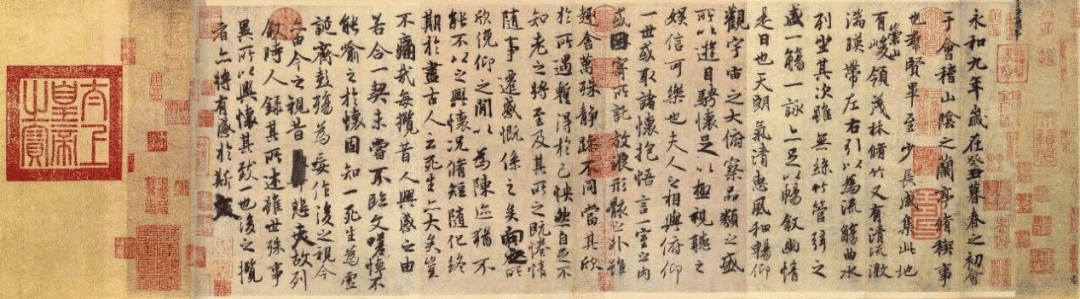 永和九年歲在癸丑暮春之初會
于會稽山陰之蘭亭脩稧事
也群賢畢至少長咸集此地
有崇山峻領茂林脩竹又有清流激
湍暎帶左右引以為流觴曲水
列坐其次雖無絲竹管弦之
盛一觴一詠亦足以暢敘幽情
是日也天朗氣清惠風和暢仰
觀宇宙之大俯察品類之盛
所以遊目騁懷足以極視聽之
娛信可樂也夫人之相與俯仰
一世或取諸懷抱悟言一室之內
或因寄所託放浪形骸之外雖
趣舍萬殊靜躁不同當其欣
於所遇暫得於己怏然自足不
知老之將至及其所之既惓情
隨事遷感慨係之矣向之所
欣俛仰之間以為陳迹猶不
能不以之興懷況脩短隨化終
期於盡古人云死生亦大矣豈
不痛哉每攬昔人興感之由
若合一契未嘗不臨文嗟悼不
能喻之於懷固知一死生為虛
誕齊彭殤為妄作後之視今
亦由今之視昔悲夫故列
敘時人錄其所述雖世殊事
異所以興懷其致一也後之攬
者亦將有感於斯文
太上
皇帝
之寶